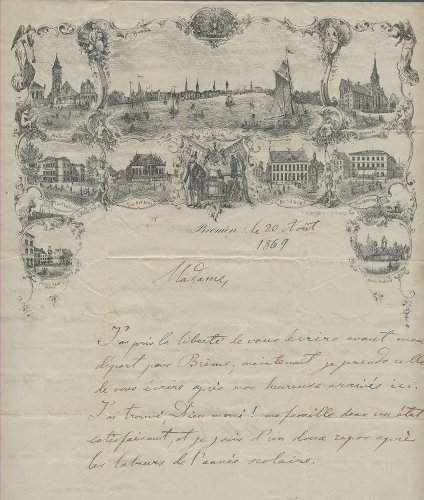 Bremen: le 20 Août
1869
Madame,
J'ai pris la liberté de vous écrire avant mon
départ pour Brème, maintenant je prends celle
de vous écrire après mon heureuse arrivée ici.
J'ai trouvé, Dieu merci! ma famille dans un état
satisfaisant, et je jouis d'un doux repos après
les labeurs de l'année scolaire.